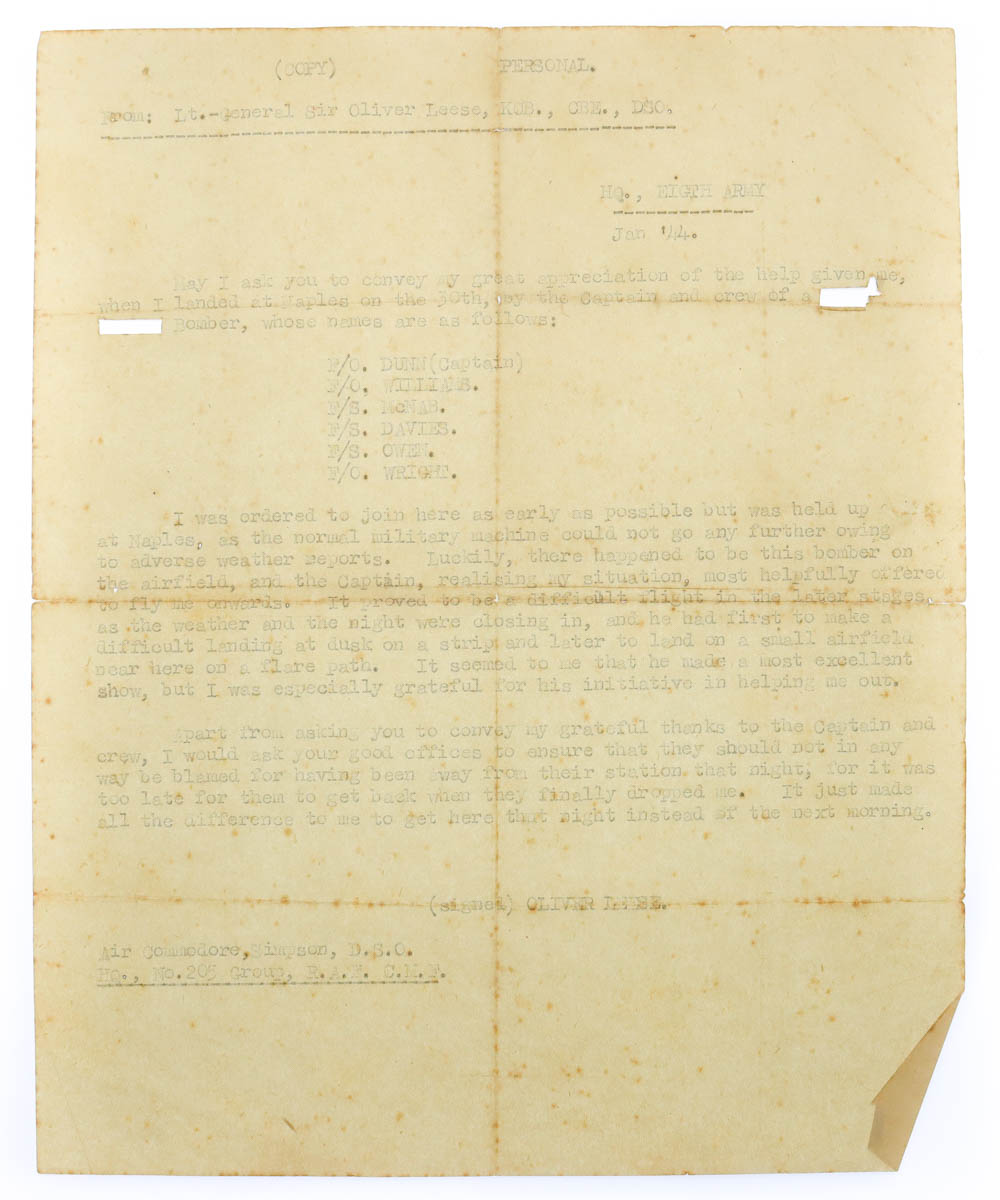 (COPY) PERSONAL.
From: Lt.-General Sir Oliver Leese, KCB., CBE., DSO.
HQ., EIGTH ARMY
Jan '44.
May I ask you to convey my great appreciation of the help given me,
when I landed at Naples on the 30th, by the Captain and crew of a
Bomber, whose names are as follows:
F/O. DUNN(Captain)
F/O. WILLIAMS.
F/S. McNAB.
F/S. DAVIES.
F/S. OWEN.
F/O. WRIGHT.
I was ordered to join here as early as possible but was held up
at Naples, as the normal military machine could not go any further owing
to adverse weather reports. Luckily, there happened to be this bomber on
the airfield, and the Captain, realising my situation, most helpfully offered
to fly me onwards. It proved to be a difficult flight in the later stages,
as the weather and the night were closing in, and he had first to make a
difficult landing at dusk on a strip and later to land on a small airfield
near here on a flare path. It seemed to me that he made a most excellent
show, but I was especially grateful for his initiative in helping me out.
Apart from asking you to convey my grateful thanks to the Captain and
crew, I would ask your good offices to ensure that they should not in any
way be blamed for having been away from their station that night, for it was
too late for them to get back when they finally dropped me. It just made
all the difference to me to get here that night instead of the next morning.
(signed) OLIVER LEESE.
Air Commodore, Simpson, D.S.O.
HQ., No.205 Group, R.A.F. C.M.F.